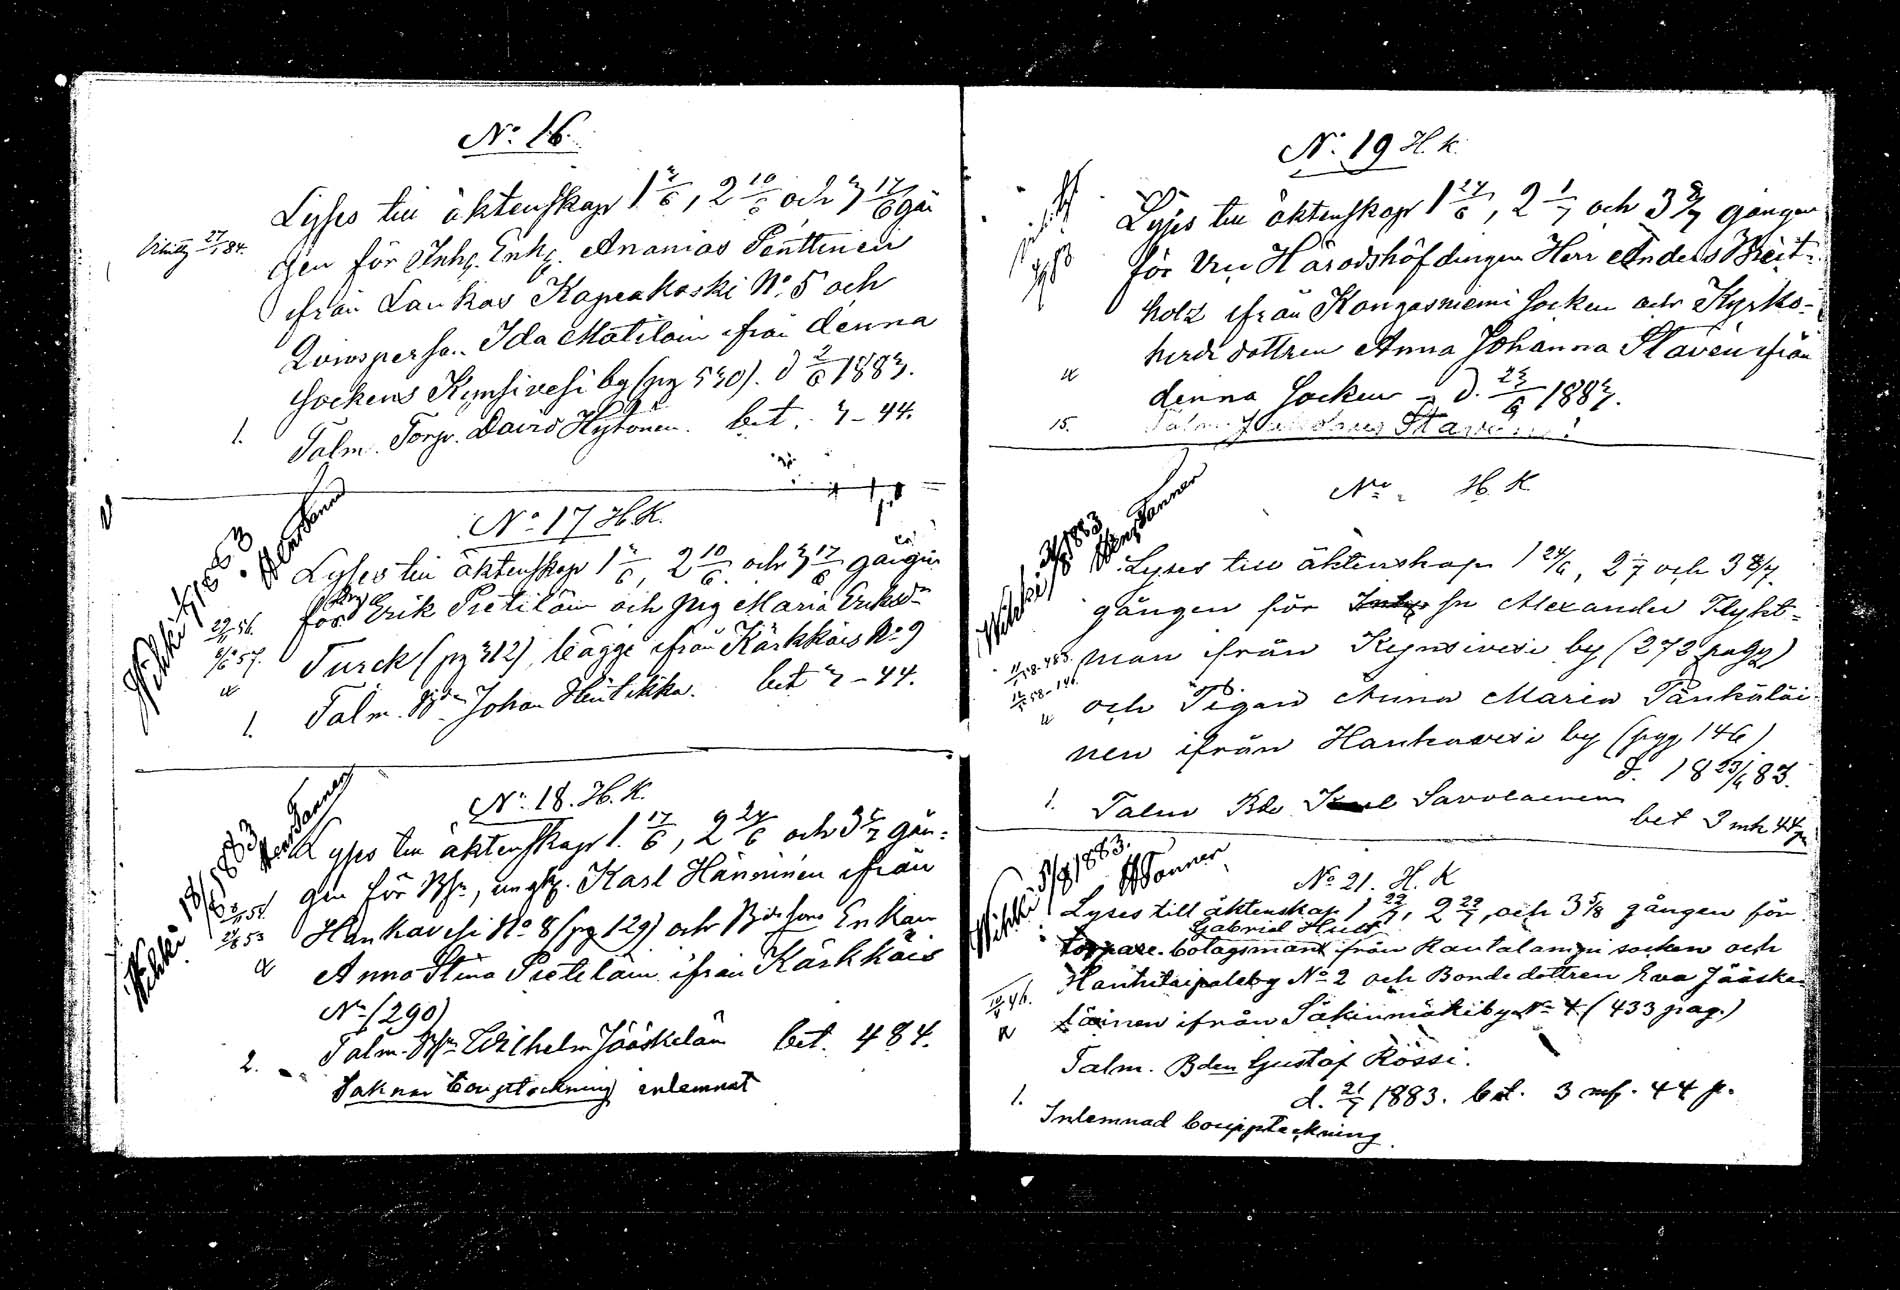 No 16
Lyses till äktenskap 1 3/6, 2 10/6 och 3 17/6 gån
gen för Inhs. Enkl. Ananias Penttinen
27/1 84.
ifrån Laukas Kapeakoski No 5 och
Qvinsperson Ida Matilain ifrån denna
sockens Kynsivesi by (pg 530). d 2/6 1883.
1. Talm. Torp. David Hytönen. bet. 3-44.
No 17 H.K.
Wihki 1/7 1883
Henr Tannen
Lyses till äktenskap 1 3/6, 2 10/6 och 3 17/6 gången
för Erik Pietiläin och pig Maria Eriksdr
29/11 56.
8/6 57.
Turck (pg 312), bägge ifrån Kärkkäis No 9
1. Talm. Johan Hintikka. bet 3-44.
No 18. H.K.
Wihki 18/8 1883
Henr Tannen
Lyses till äktenskap 1. 17/6, 2 24/6 och 3 5/7 gån=
gen för Bsn, ungk. Karl Hänninen ifrån
Hankavesi No 8 (pg 129) och Bdesons Enkan
Anna Stina Pietiläin ifrån Kärkkäis
No (290)
2. Talm. Bsn Wilhelm Jääskeläin bet. 484.
Saknar bouptekning inlemnat
No 19 H.K.
Lyses till äktenskap 1 24/6, 2 1/7 och 3 8/7 gången
för Vice Häradshöfdingen Herr Anders Breit=
holz ifrån Kangasniemi Socken och Kyrko-
herde dottren Anna Johanna Stavén ifrån
denna Socken d. 23/6 1883.
15. Talm. Stavén
No H.K.
Wihki 1883
Henr Tannen
Lyses till äktenskap 1 24/6, 2 1/7 och 3 8/7.
gången för Sn Alexander Flykt=
man ifrån Kynsivesi by (272 pag)
och Pigan Anna Maria Pänkäläi-
nen ifrån Hankavesi by (pag 146)
d. 18 23/6 83.
1. Talm Bde Savolainen
bet 3 mk 44 p
No 21. H.K
Wihki 5/8 1883.
HTannen
Lyses till äktenskap 1 22/7, 2 29/7, och 3 5/8 gången för
Gabriel Hult
torpare. bolagsman från Rautalampi socken och
Hanhitaipaleby No 2 och Bonde dottren Eva Jääske-
läinen ifrån Säkinmäkiby No 4 (433 pag.)
Talm. Bden Gustaf Rössi.
1. d. 21/7 1883. bet. 3 mk. 44 p.
Inlemnad bouppteckning.